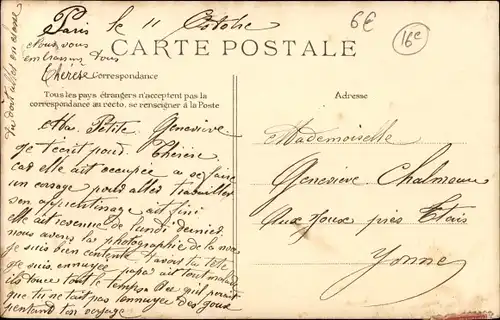 Paris le 11 Octobre
6€
16€
CARTE POSTALE
Nous vous
embrassons tous
Thérèse
Correspondance
Tous les pays étrangers n'acceptent pas la
correspondance au recto. se renseigner à la Poste
Adresse
Ma Petite Geneviève
je t'écrit pour Thérèse
car elle ait occupée a se faire
un corsage pour aller travailler
son apprentissage ait fini
elle ait revenue de lundi dernier
nous avons la photographie de la noce
je suis bien contente d'avoir ta tête
je suis ennuyée papa ait tout malade
ils touce tout le temps
que tu ne tait pas ennuyée des goux
pendant ton voyage
Mademoiselle
Geneviève
aux Joux près Etais
Yonne